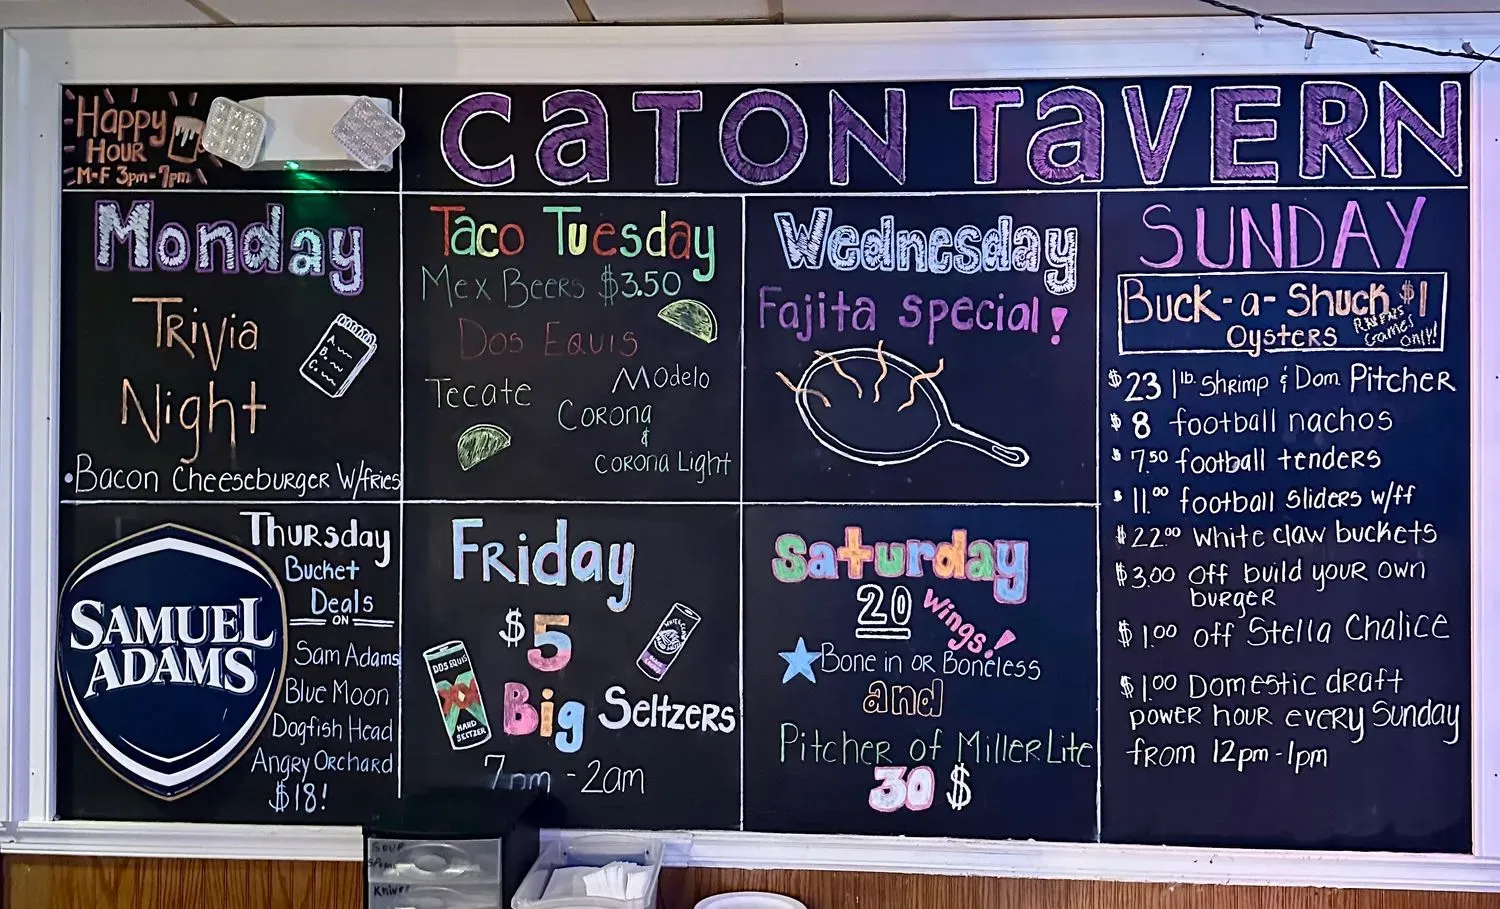 Happy
Hour
M-F 3pm-7pm
CATON TAVERN
Monday
Trivia
Night
A.
B.
C.
•Bacon Cheeseburger W/fries
Taco Tuesday
Mex Beers $3.50
Dos Equis
Tecate
Modelo
Corona
&
Corona Light
Wednesday
Fajita special!
Thursday
Bucket
Deals
ON
Sam Adams
Blue Moon
Dogfish Head
Angry Orchard
$18!
SAMUEL
ADAMS
Friday
$5
Big Seltzers
DOS EQUIS
XX
HARD
SELTZER
WHITE CLAW
7pm - 2am
Saturday
20 wings!
Bone in or Boneless
and
Pitcher of Miller Lite
30 $
SUNDAY
Buck-a-Shuck $1
Oysters
RAVENS
Games
Only!
$23 1lb. Shrimp & Dom. Pitcher
$8 football nachos
$7.50 football tenders
$11.00 football sliders w/ff
$22.00 white claw buckets
$3.00 off build your own
burger
$1.00 off Stella Chalice
$1.00 Domestic draft
power hour every Sunday
from 12pm-1pm
SOUP